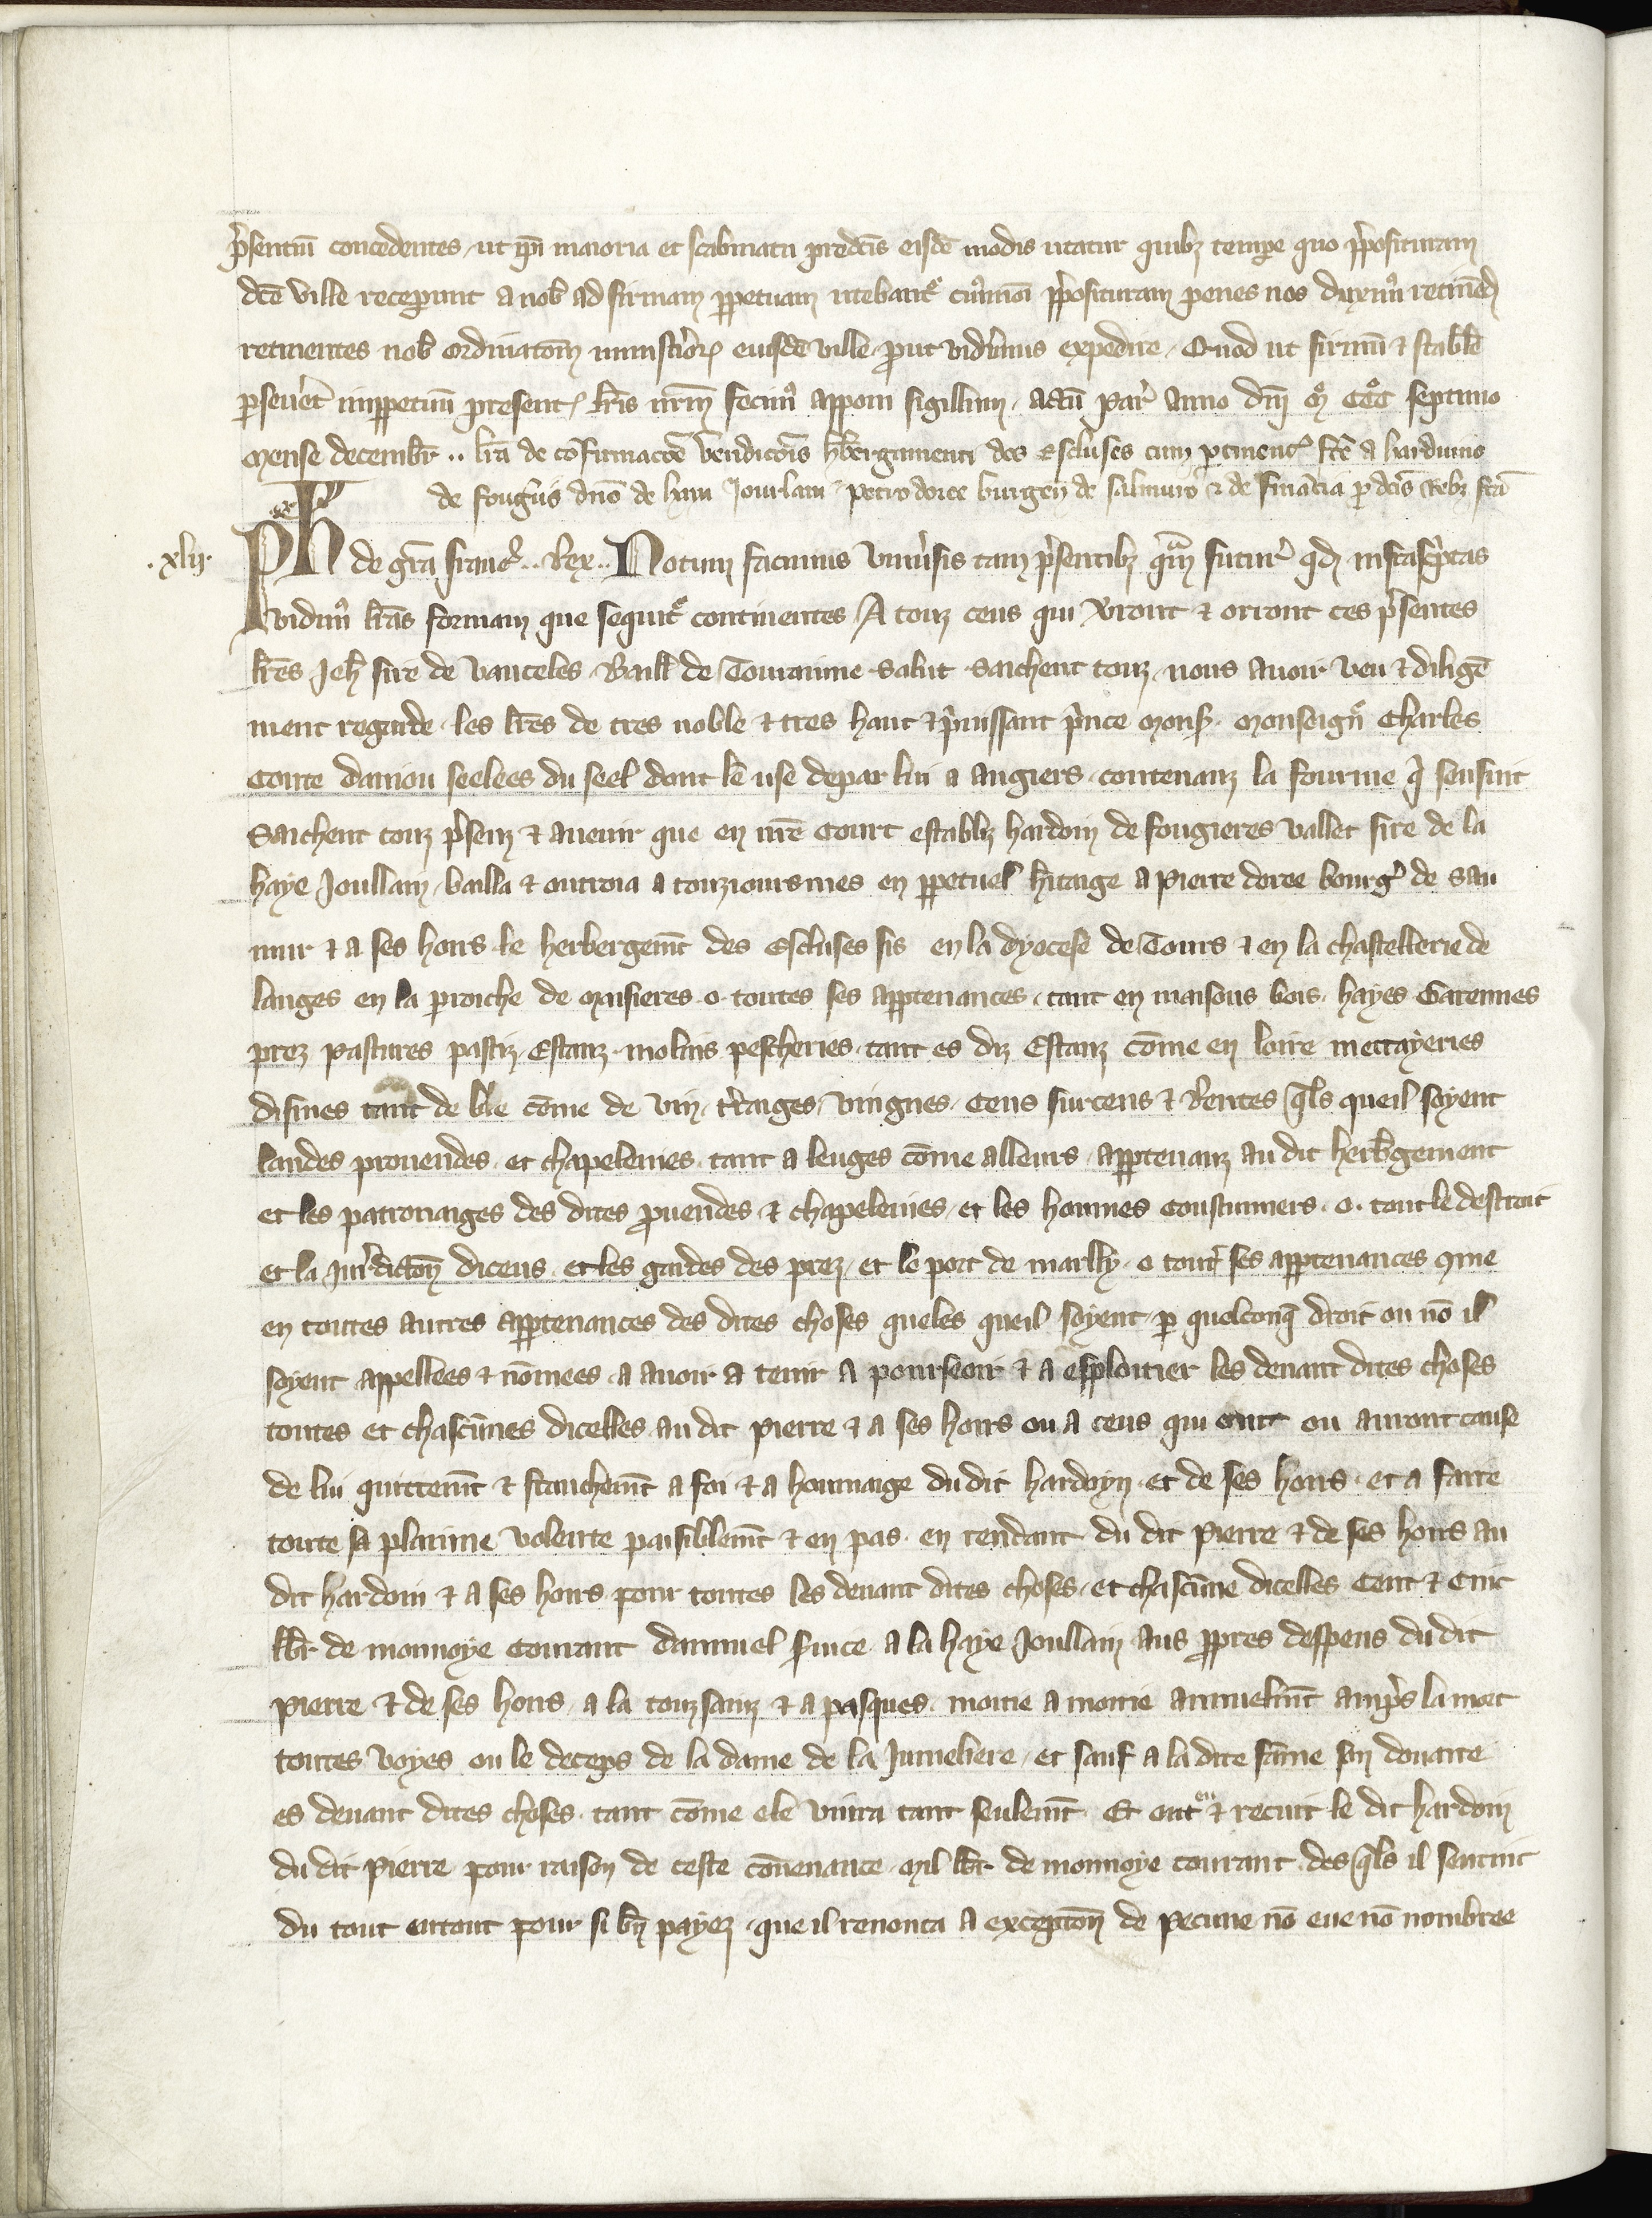 p̾sentiū concedentes, ut ip̄i maioria et scabinatu predcīs eisdē modis utatur quibꝫ tempe quo p̾posituram
dcē ville receperunt a nob̄ ad firmam ꝑpetuam utebant᷑ cuiꝰmōi p̾posituram penes nos duximꝰ retinēd
retinentes nob̄ ordinatōm ministroꝝ eiusdē ville prout viderimus expedire. Quod ut firmū ⁊ stabile
ꝑseueret imꝑpetuū presentꝭ lrīs nrm̄ fecimꝰ apponi sigillum. actū parꝭ anno dn̄i mͦ CCCͦ septimo
mense decembr̄ .. lrā de cōfirmacōe vendicōis hb̓ergamenti des Escluses cum ꝑtinent̄ fcē a harduino
de fougiis dn̄o de haia Joullani, petro doree burgēn de salmuro ⁊ de financia ꝑ dcīs rebꝫ fcā
.xlij. Ph̄ de grā franc̄ .. Rex .. Notum facimus vniu̓sis tam p̾sentibꝫ q̄m futurꝭ qd̄ infrasc̾ptas
vidimꝰ lrās formam que sequit᷑ continentes A touz ceus qui v̓ront ⁊ orront ces p̾sentes
lrēs Jeh̄ sire de vanceles Baill̄ de Touraine salut saichent touz nous auoir veu ⁊ diligē
ment regarde les lrēs de tres noble ⁊ tres haut ⁊ puissant p̾nce mons̄. monseign᷑ Charles
Conte danjou seelees du seel dont lē use depar lui a angiers contenanz la fourme q̄ sensuit
Saichent touz p̾senz ⁊ auenir que en nrē court establiz hardoin de fougieres vallet sire de la
haye Joullain, bailla ⁊ outroia a touziours mes en ꝑpetuel h̓itaige a Pierre doree bourgꝭ de sau
mur ⁊ a ses hoirs le herbergem̄t des Escluses sis en la dyocese de Tours ⁊ en la chastellerie de
langes en la ꝑroiche de maisieres o toutes ses apꝑtenances, tant en maisons bois, hayes Garennes
prez pastures pastiz, Estanz, molins pescheries, tant es diz Estanz cōme en loire mettayeries
disines tant de ble cōme de vin, t̓raiges, vingnes, cens surcens ⁊ rentes q̄ls queil soyent
landes prouendes et chapelenies, tant a lenges cōme alleurs, apꝑtenanz au dit herb̓gement
et les patronaiges des dites prouendes ⁊ chapelenies, et les hommes coustumiers o. tout le destroit
et la iur̓dictōn diceus, et les gardes des prez, et le port de marlly o toutꝭ ses apꝑtenances q̄me
en toutes autres apꝑtenances des dites choses queles queil soyent ꝑ quelconq̄ droit ou nō il
soyent appellees ⁊ nōmees a auoir a tenir a pourseoir ⁊ a esploitier les deuant dites choses
toutes et chascūnes dicelles au dit Pierre ⁊ a ses hoirs ou a ceus qui ont ou auront cause
de lui quittem̄t ⁊ franchem̄t a foi ⁊ a hommaige du dit hardoyn et de ses hoirs, et a faire
toute sa plaunie volente paisiblem̄t ⁊ en pas en rendant du dit Pierre ⁊ de ses hoirs au
dit hardoin ⁊ a ses hoirs pour toutes les deuant dites choses, et chascūne dicelles cent ⁊ cinc
lbr̄ de monnoye courant dannuel s̓uice a la haye Joullain aus ꝓpres despens du dit
pierre ⁊ de ses hoirs a la touzsainz ⁊ a pasques, moitie a moitie annuelm̄t amp̾s la mort
toutes voyes ou le deceps de la dame de la Jumeliere, et sauf a la dite fāme son douaire
es deuant dites choses tant cōme ele viura tant seulem̄t Et out eu ⁊ recuit le dit hardoin
du dit Pierre pour raison de ceste cōuenance mil lbr̄ de monnoye courant, des q̄ls il se tint
du tout en tout pour si bn̄ payez, que il renonca a exceptōn de pecune nō eue nō nombree